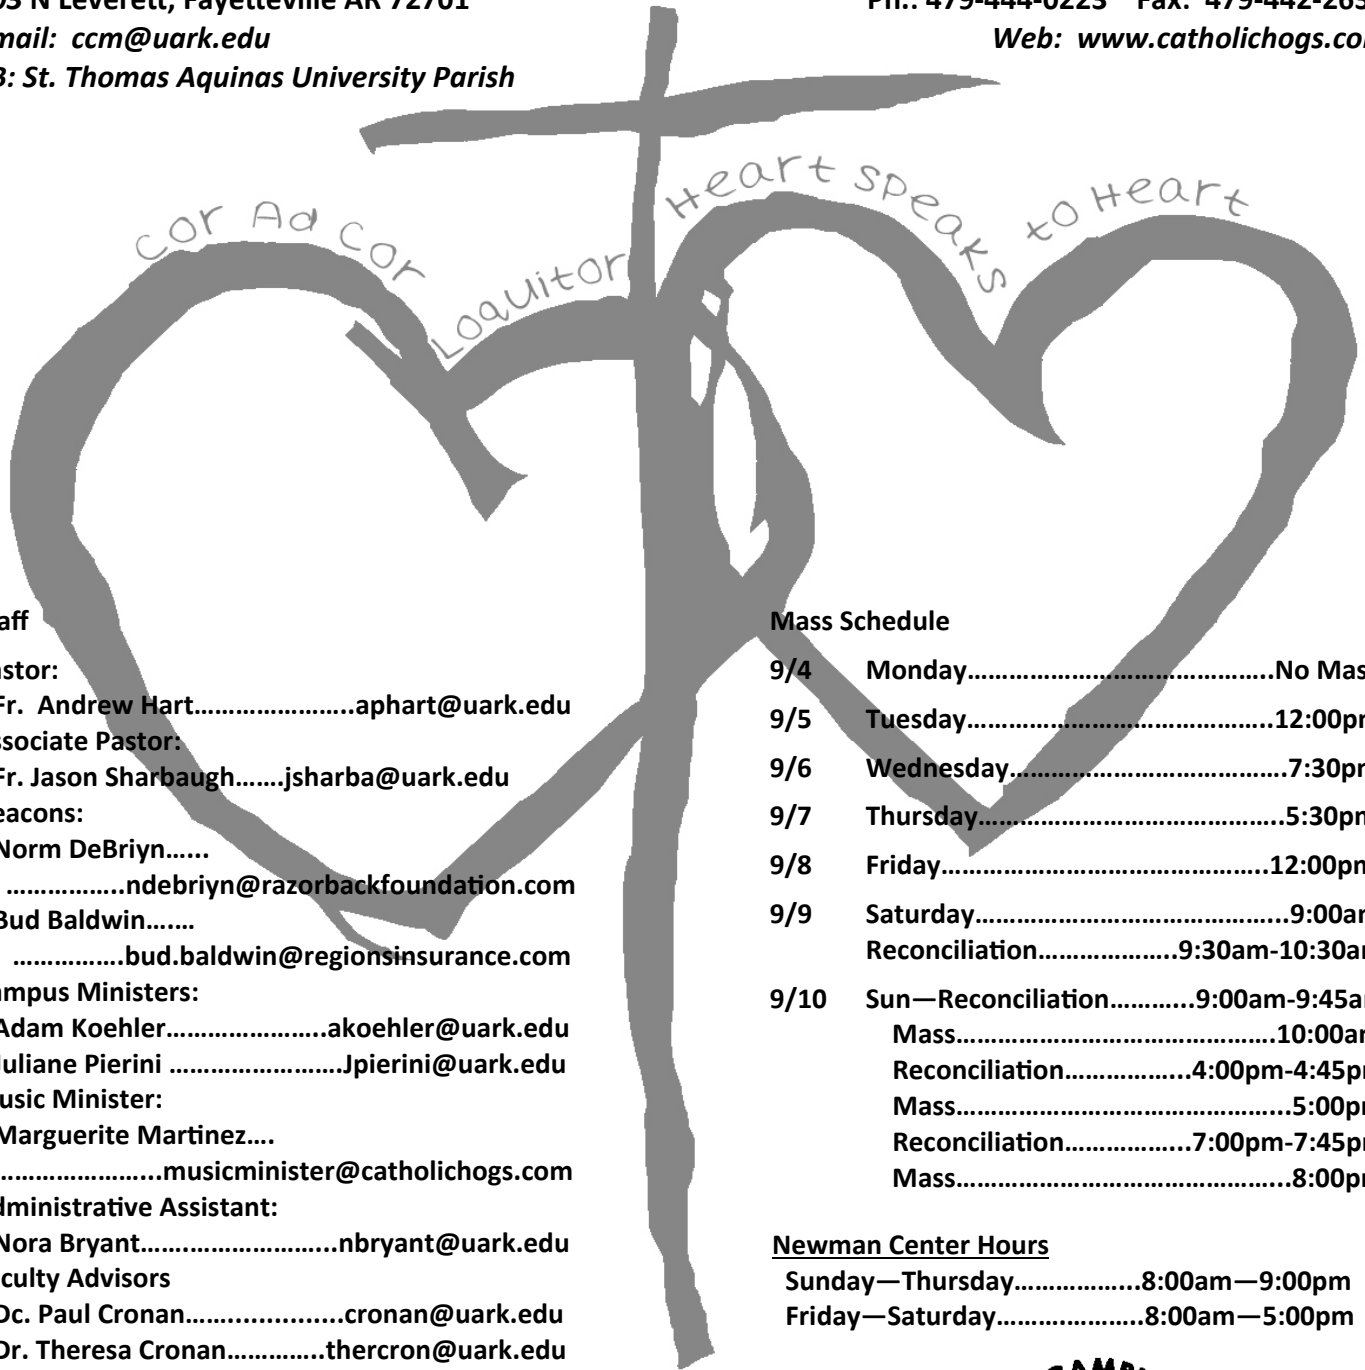 03 N Leverett, Fayetteville AR 72701
Ph.: 479-444-0223 Fax: 479-442-265
mail: ccm@uark.edu
Web: www.catholichogs.co
B: St. Thomas Aquinas University Parish
Cor Ad Cor Loquitor
Heart Speaks to Heart
aff
astor:
Fr. Andrew Hart.....................aphart@uark.edu
ssociate Pastor:
Fr. Jason Sharbaugh.......jsharba@uark.edu
eacons:
Norm DeBriyn......
.................ndebriyn@razorbackfoundation.com
Bud Baldwin.......
................bud.baldwin@regionsinsurance.com
ampus Ministers:
Adam Koehler.....................akoehler@uark.edu
Juliane Pierini .......................Jpierini@uark.edu
usic Minister:
Marguerite Martinez....
......................musicminister@catholichogs.com
dministrative Assistant:
Nora Bryant..........................nbryant@uark.edu
culty Advisors
Dc. Paul Cronan.....................cronan@uark.edu
Dr. Theresa Cronan.............thercron@uark.edu
Mass Schedule
9/4 Monday.........................................No Mas
9/5 Tuesday.........................................12:00p
9/6 Wednesday.....................................7:30p
9/7 Thursday.........................................5:30p
9/8 Friday...........................................12:00p
9/9 Saturday..........................................9:00a
Reconciliation...................9:30am-10:30a
9/10 Sun—Reconciliation...........9:00am-9:45a
Mass...........................................10:00a
Reconciliation.................4:00pm-4:45p
Mass.............................................5:00p
Reconciliation.................7:00pm-7:45p
Mass.............................................8:00p
Newman Center Hours
Sunday—Thursday.................8:00am—9:00pm
Friday—Saturday....................8:00am—5:00pm